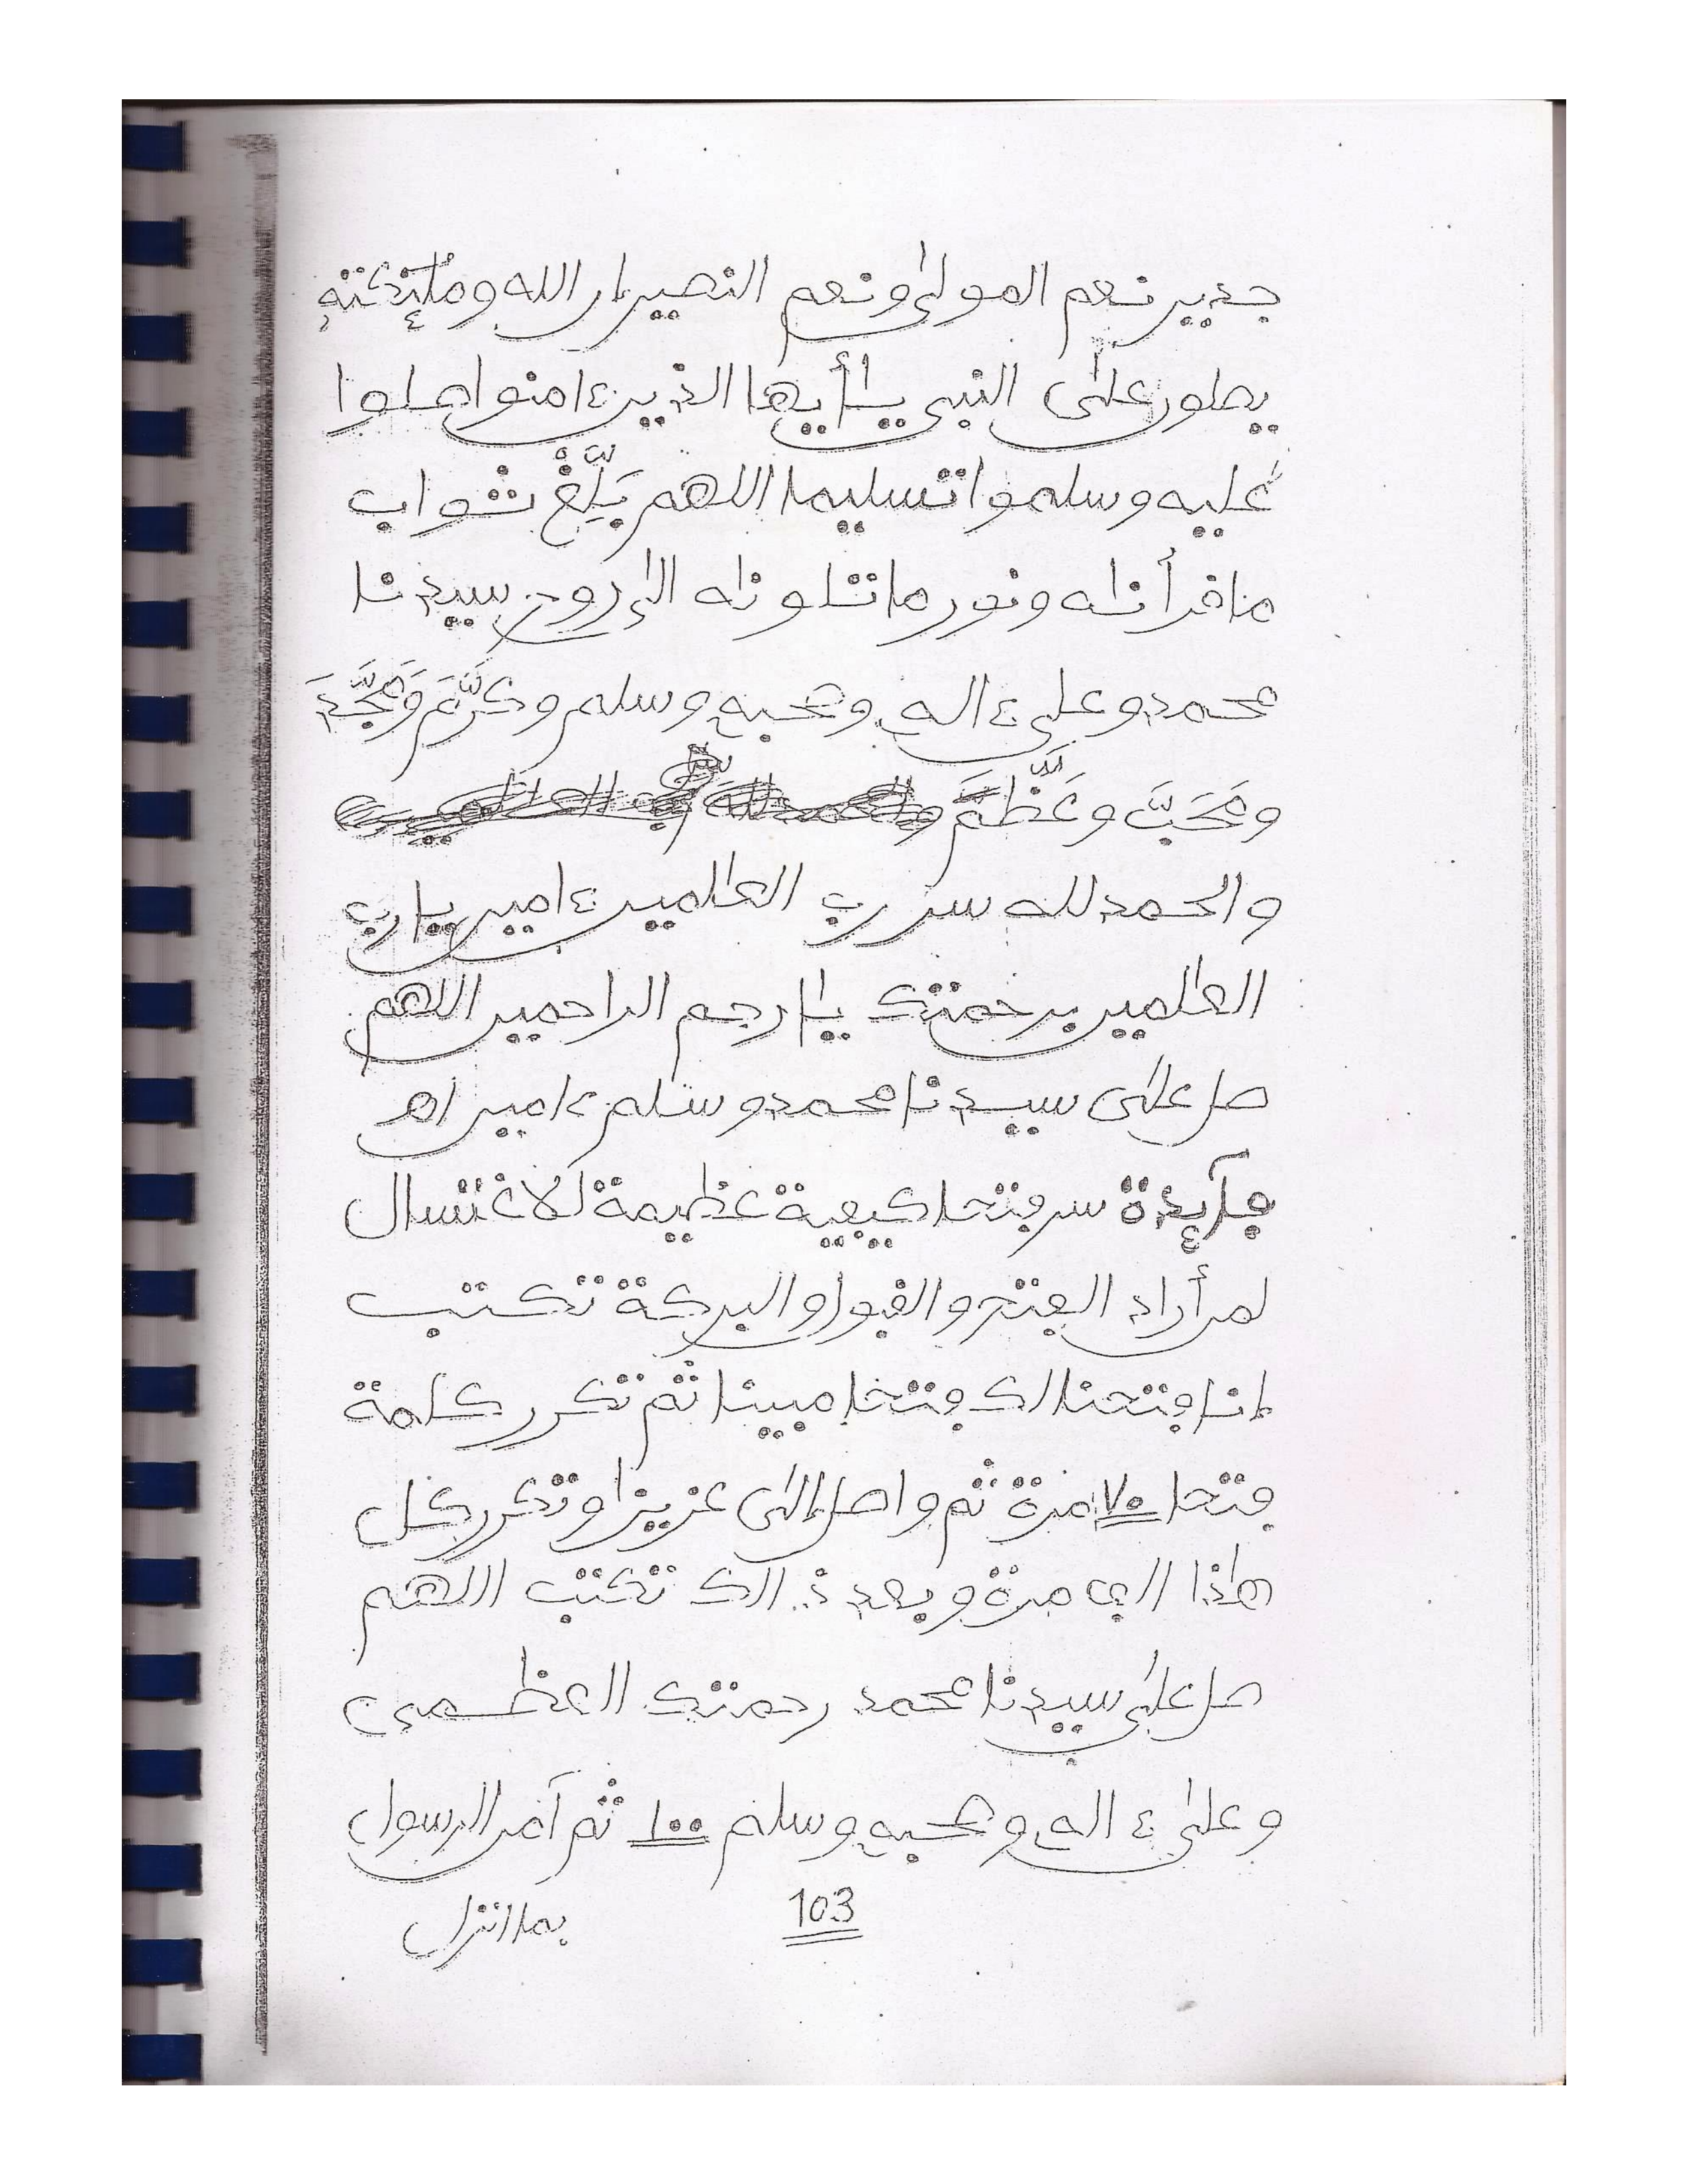 جدير نعم المولى ونعم النصير إن الله وملئكته
يصلون على النبي يأيها الذين ءامنوا صلوا
عليه وسلموا تسليما اللهم بَلِّغْ ثواب
ما قرأناه ونور ما تلوناه إلى روح سيدنا
محمد وعلى ءاله وصحبه وسلم وكرَّمَ ومَجَّدَ
وعَظَّمَ
والحمد لله رب العالمين ءامين يارب
العلمين برحمتك يا ارحم الراحمين اللهم
صل على سيدنا محمد وسلم ءامين اه
فآئدة سر فتحا كيفية عظيمة لاغتسال
لمن أراد الفتح والقبول والبركة تكتب
إنا فتحنا لك فتحا مبينا ثم تكرر كلمة
فتحا ٧٠ مرة ثم واصل إلى عزيزا وتكرر كل
هذا الى مرة وبعد ذالك تكتب اللهم
صل على سيدنا محمد رحمتك العظمى
وعلى ءاله وصحبه وسلم ١٠٠ ثم آمن الرسول
103 بما انزل